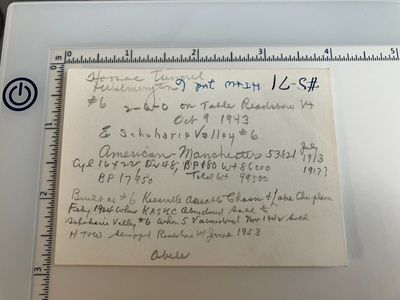 in 0 1 2 3 4 5
1
2
3
Hoosac Tunnel
& Wilmington
HTW 2nd 6
#S-71
#6 2-6-0 on Table Readsboro Vt
Oct 9 1943
Ex Schoharie Valley #6.
American-Manchester 53821 July
1913
1917?
Cyl 16x22 Dr 48, BP 180 Wt 86000
BP 17950 Total Wt 99500
Built as #6 Keeseville Ausable Chasm & Lake Champlain
Feby 1924 When KAC&LC Abandoned Sold to
Schoharie Valley #6 When S V abandoned Nov 1942 Sold
HT&W Scrapped Readsboro Vt June 1953